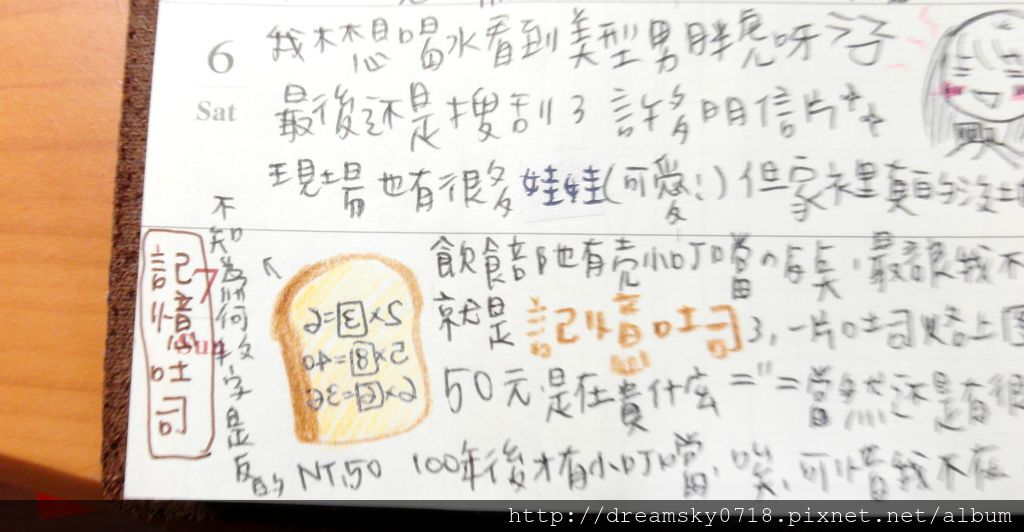 6
Sat
我本想喝水看到美型男胖虎呀
最後還是搜刮了許多明信片++
現場也有很多娃娃(可愛!)但家裡真的沒
飲食部also有賣小叮噹の
就是記憶吐司了,一片吐司烙上
50元是在貴什麼="=當然還是有很
NT.50 100年後才有小叮噹,唉,可惜我不在
記憶吐司
Sun
不知為何數字是反的
2×3=6
5×8=40
6×6=36
http://dreamsky0718.pixnet.net/album